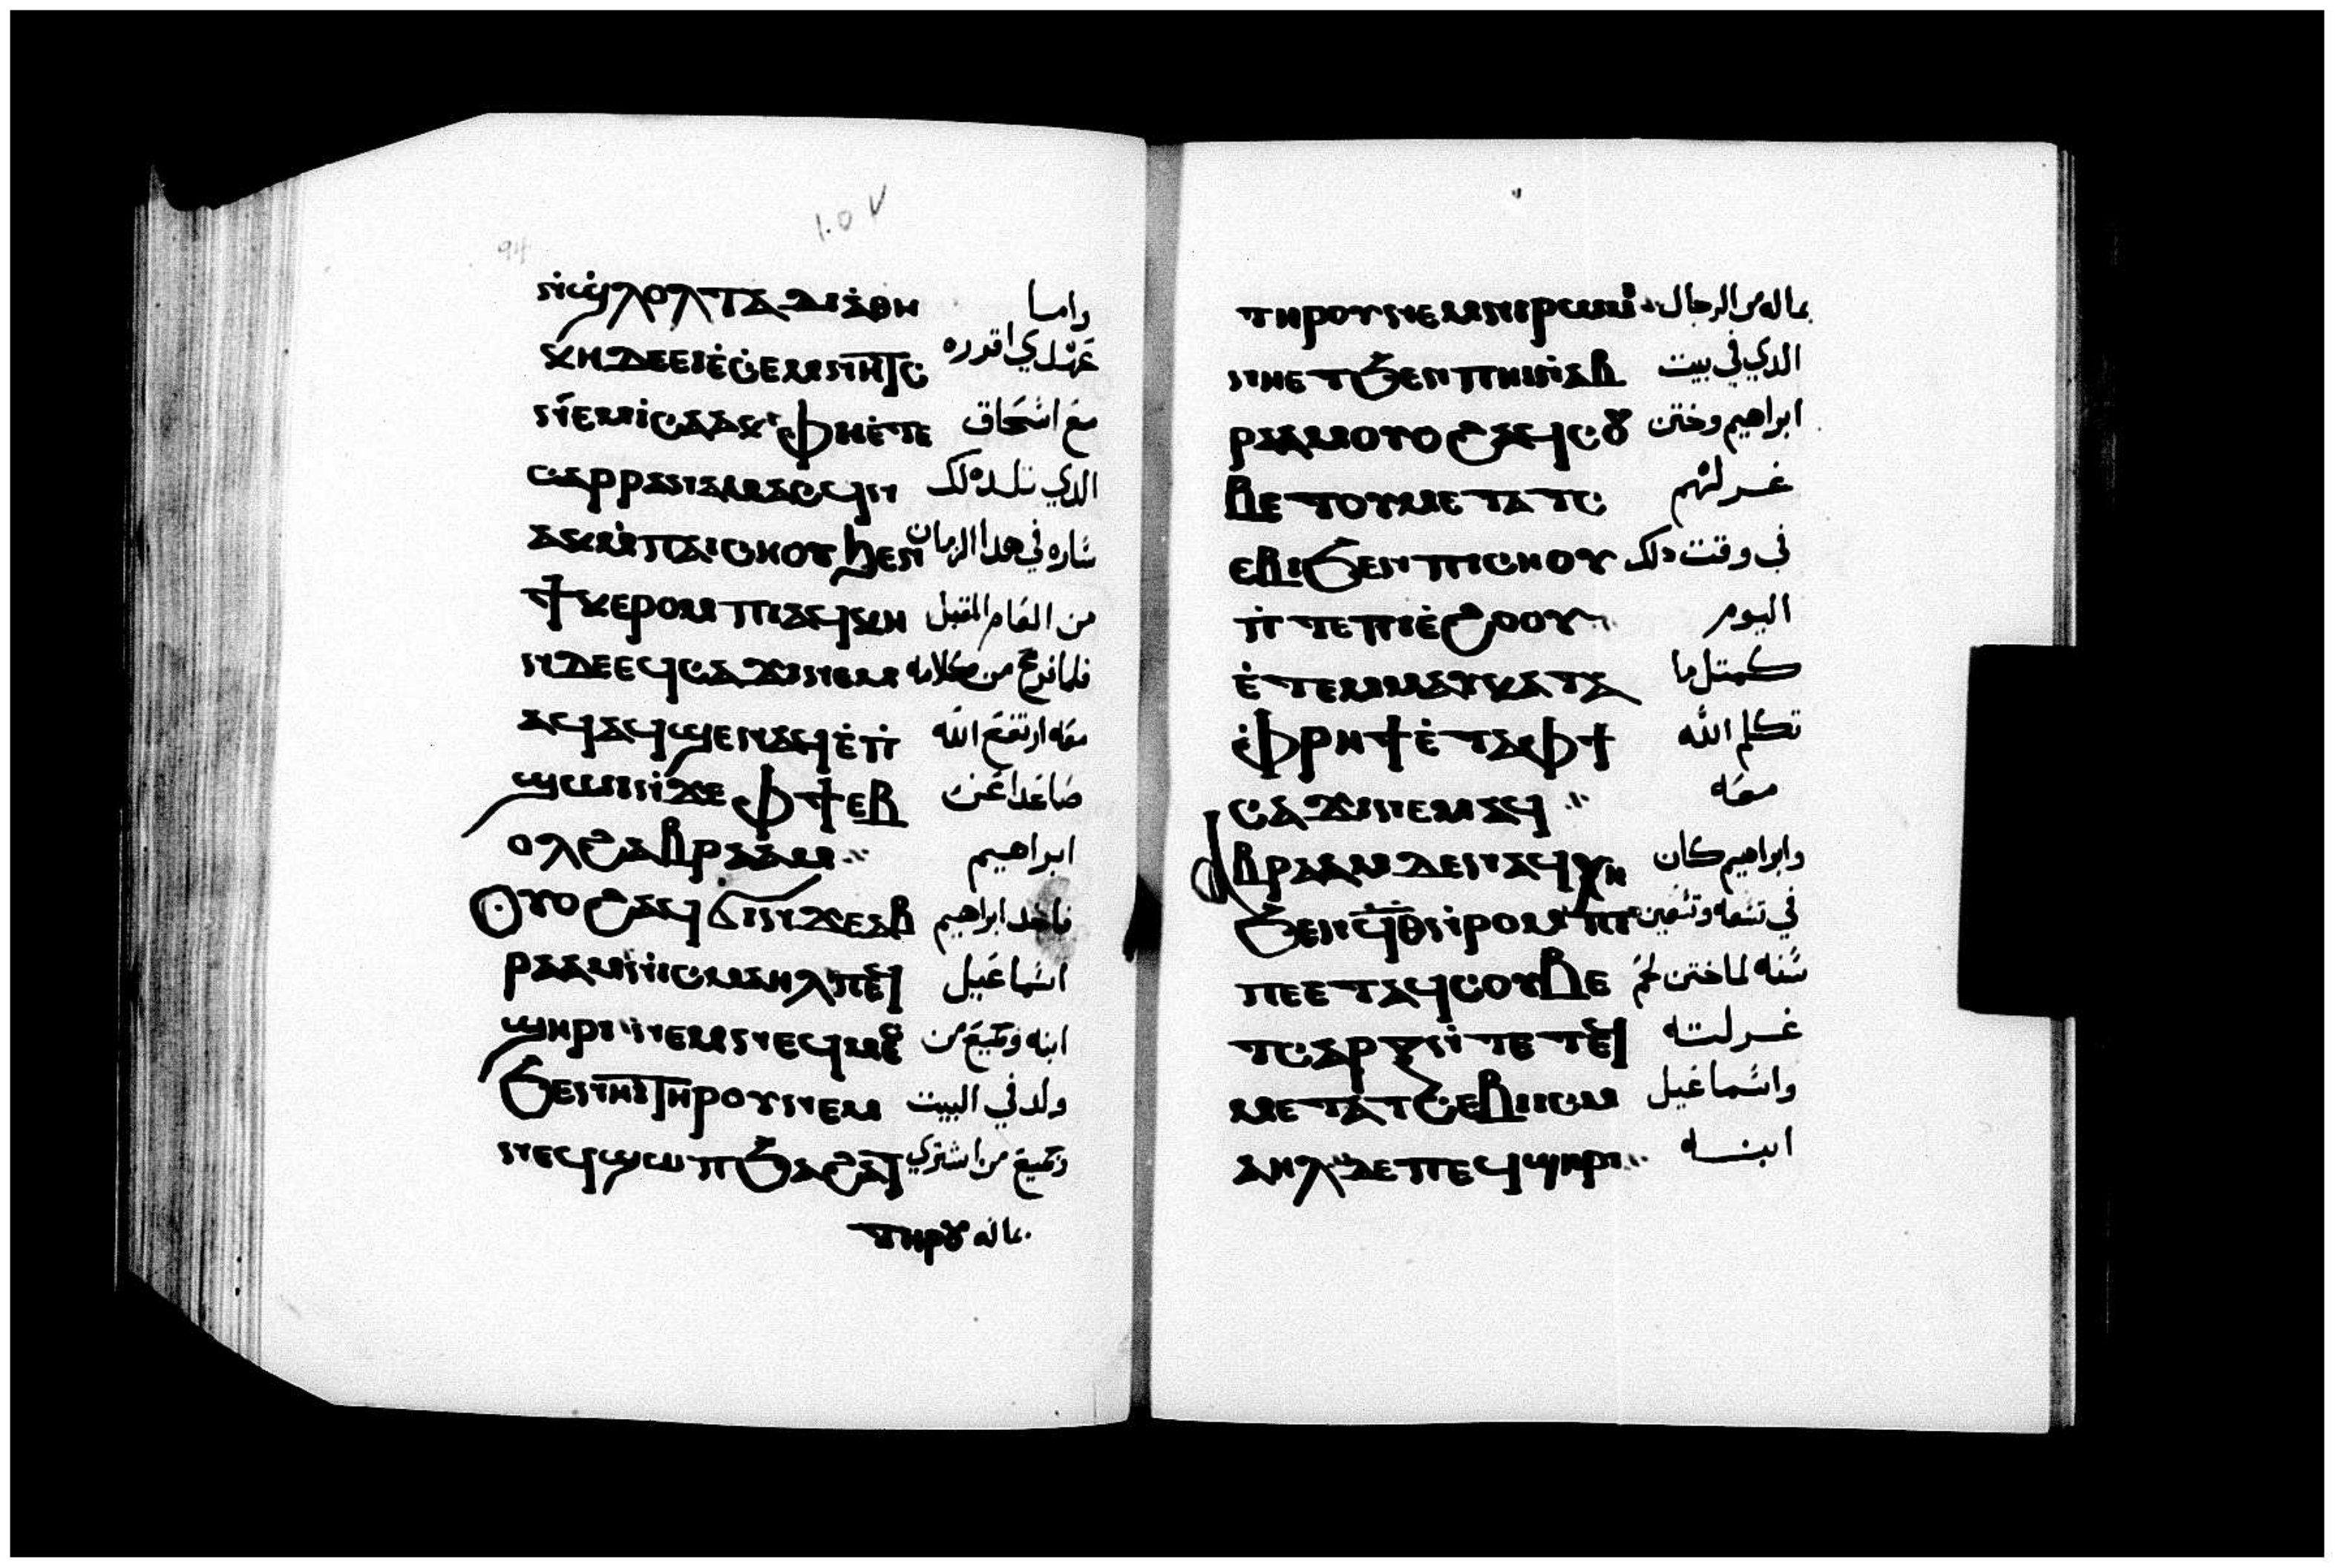 ١٠٧
94
ⲛϣⲗⲟⲗ ⲧⲁⲇⲓⲁⲑⲏ واما
ⲕⲏ ⲇⲉ ⲉⲓⲉⲥⲉⲙⲛⲏⲧⲥ عهدي اقرره
ⲛⲉⲙ ⲓⲥⲁⲁⲕ ⲫⲏⲉⲧⲉ مع اسحاق
ⲥⲁⲣⲣⲁ ⲛⲁⲙⲁⲥϥ ⲛ الدي تلده لك
ⲁⲕ ⲙⲡⲁⲓⲥⲏⲟⲩ ϧⲉⲛ ساره في هدا الزمان
ϯⲕⲉⲣⲟⲙⲡⲓ ⲁϥⲕⲏ من العام المقبل
ⲛ ⲇⲉ ⲉϥⲥⲁϫⲓ ⲛⲉⲙ فلما فرغ من كلامه
ⲁϥ ⲁϥϣⲉⲛⲁϥ ⲉⲡ معه ارتفع الله
ϣⲱⲓ ⲛϫⲉ ⲫϯ ⲉⲃ صاعدا عن
ⲟⲗϩⲁ ⲁⲃⲣⲁⲁⲙ ابراهيم
ⲟⲩⲟϩ ⲁϥϭⲓ ⲛϫⲉ ⲁⲃ فاخد ابراهيم
ⲣⲁⲁⲙ ⲛⲓⲥⲙⲁⲏⲗ ⲡⲉϥ اسماعيل
ϣⲏⲣⲓ ⲛⲉⲙ ⲛⲉϥⲙⲉ ابنه وجميع من
ϧⲉⲛⲏⲓ ⲧⲏⲣⲟⲩ ⲛⲉⲙ ولد في البيت
ⲛⲉϥϣⲱⲡ ϧⲁ ϩⲁⲧ وجميع من اشتري
ⲧⲏⲣⲟⲩ بماله
ⲧⲏⲣⲟⲩ ⲛⲉⲙ ⲛⲓⲣⲱⲙⲓ بماله من الرجال
ⲛⲏⲉⲧϧⲉⲛ ⲡⲏⲓ ⲛⲁⲃ الدي في بيت
ⲣⲁⲁⲙ ⲟⲩⲟϩ ⲁϥⲥⲟⲩ ابراهيم وختن
ⲃⲉ ⲧⲟⲩⲙⲉⲧⲁⲧⲥ غرلتهم
ⲉⲃⲓ ϧⲉⲛ ⲡⲓⲥⲏⲟⲩ في وقت دلك
ⲛⲧⲉ ⲡⲓⲉϩⲟⲟⲩ اليوم
ⲉⲧⲉⲙⲙⲁⲩ ⲕⲁⲧⲁ كمتل ما
ⲫⲣⲏϯ ⲉⲧⲁ ⲫϯ تكلم الله
ⲥⲁϫⲓ ⲛⲉⲙⲁϥ معه
ⲁⲃⲣⲁⲁⲙ ⲇⲉ ⲛⲁϥⲭⲏ وابراهيم كان
ϧⲉⲛ ϥⲑ ⲛⲣⲟⲙⲡⲓ في تسعه وتسعين
ⲡⲉ ⲉⲧⲁϥⲥⲟⲩⲃⲉ سنه لما ختن لحم
ⲧⲥⲁⲣⲝ ⲛⲧⲉ ⲧⲉϥ غرلته
ⲙⲉⲧⲁⲧⲥⲉⲃⲓ ⲓⲥⲙ واسماعيل
ⲁⲏⲗ ⲇⲉ ⲡⲉϥϣⲏⲣⲓ ابنه